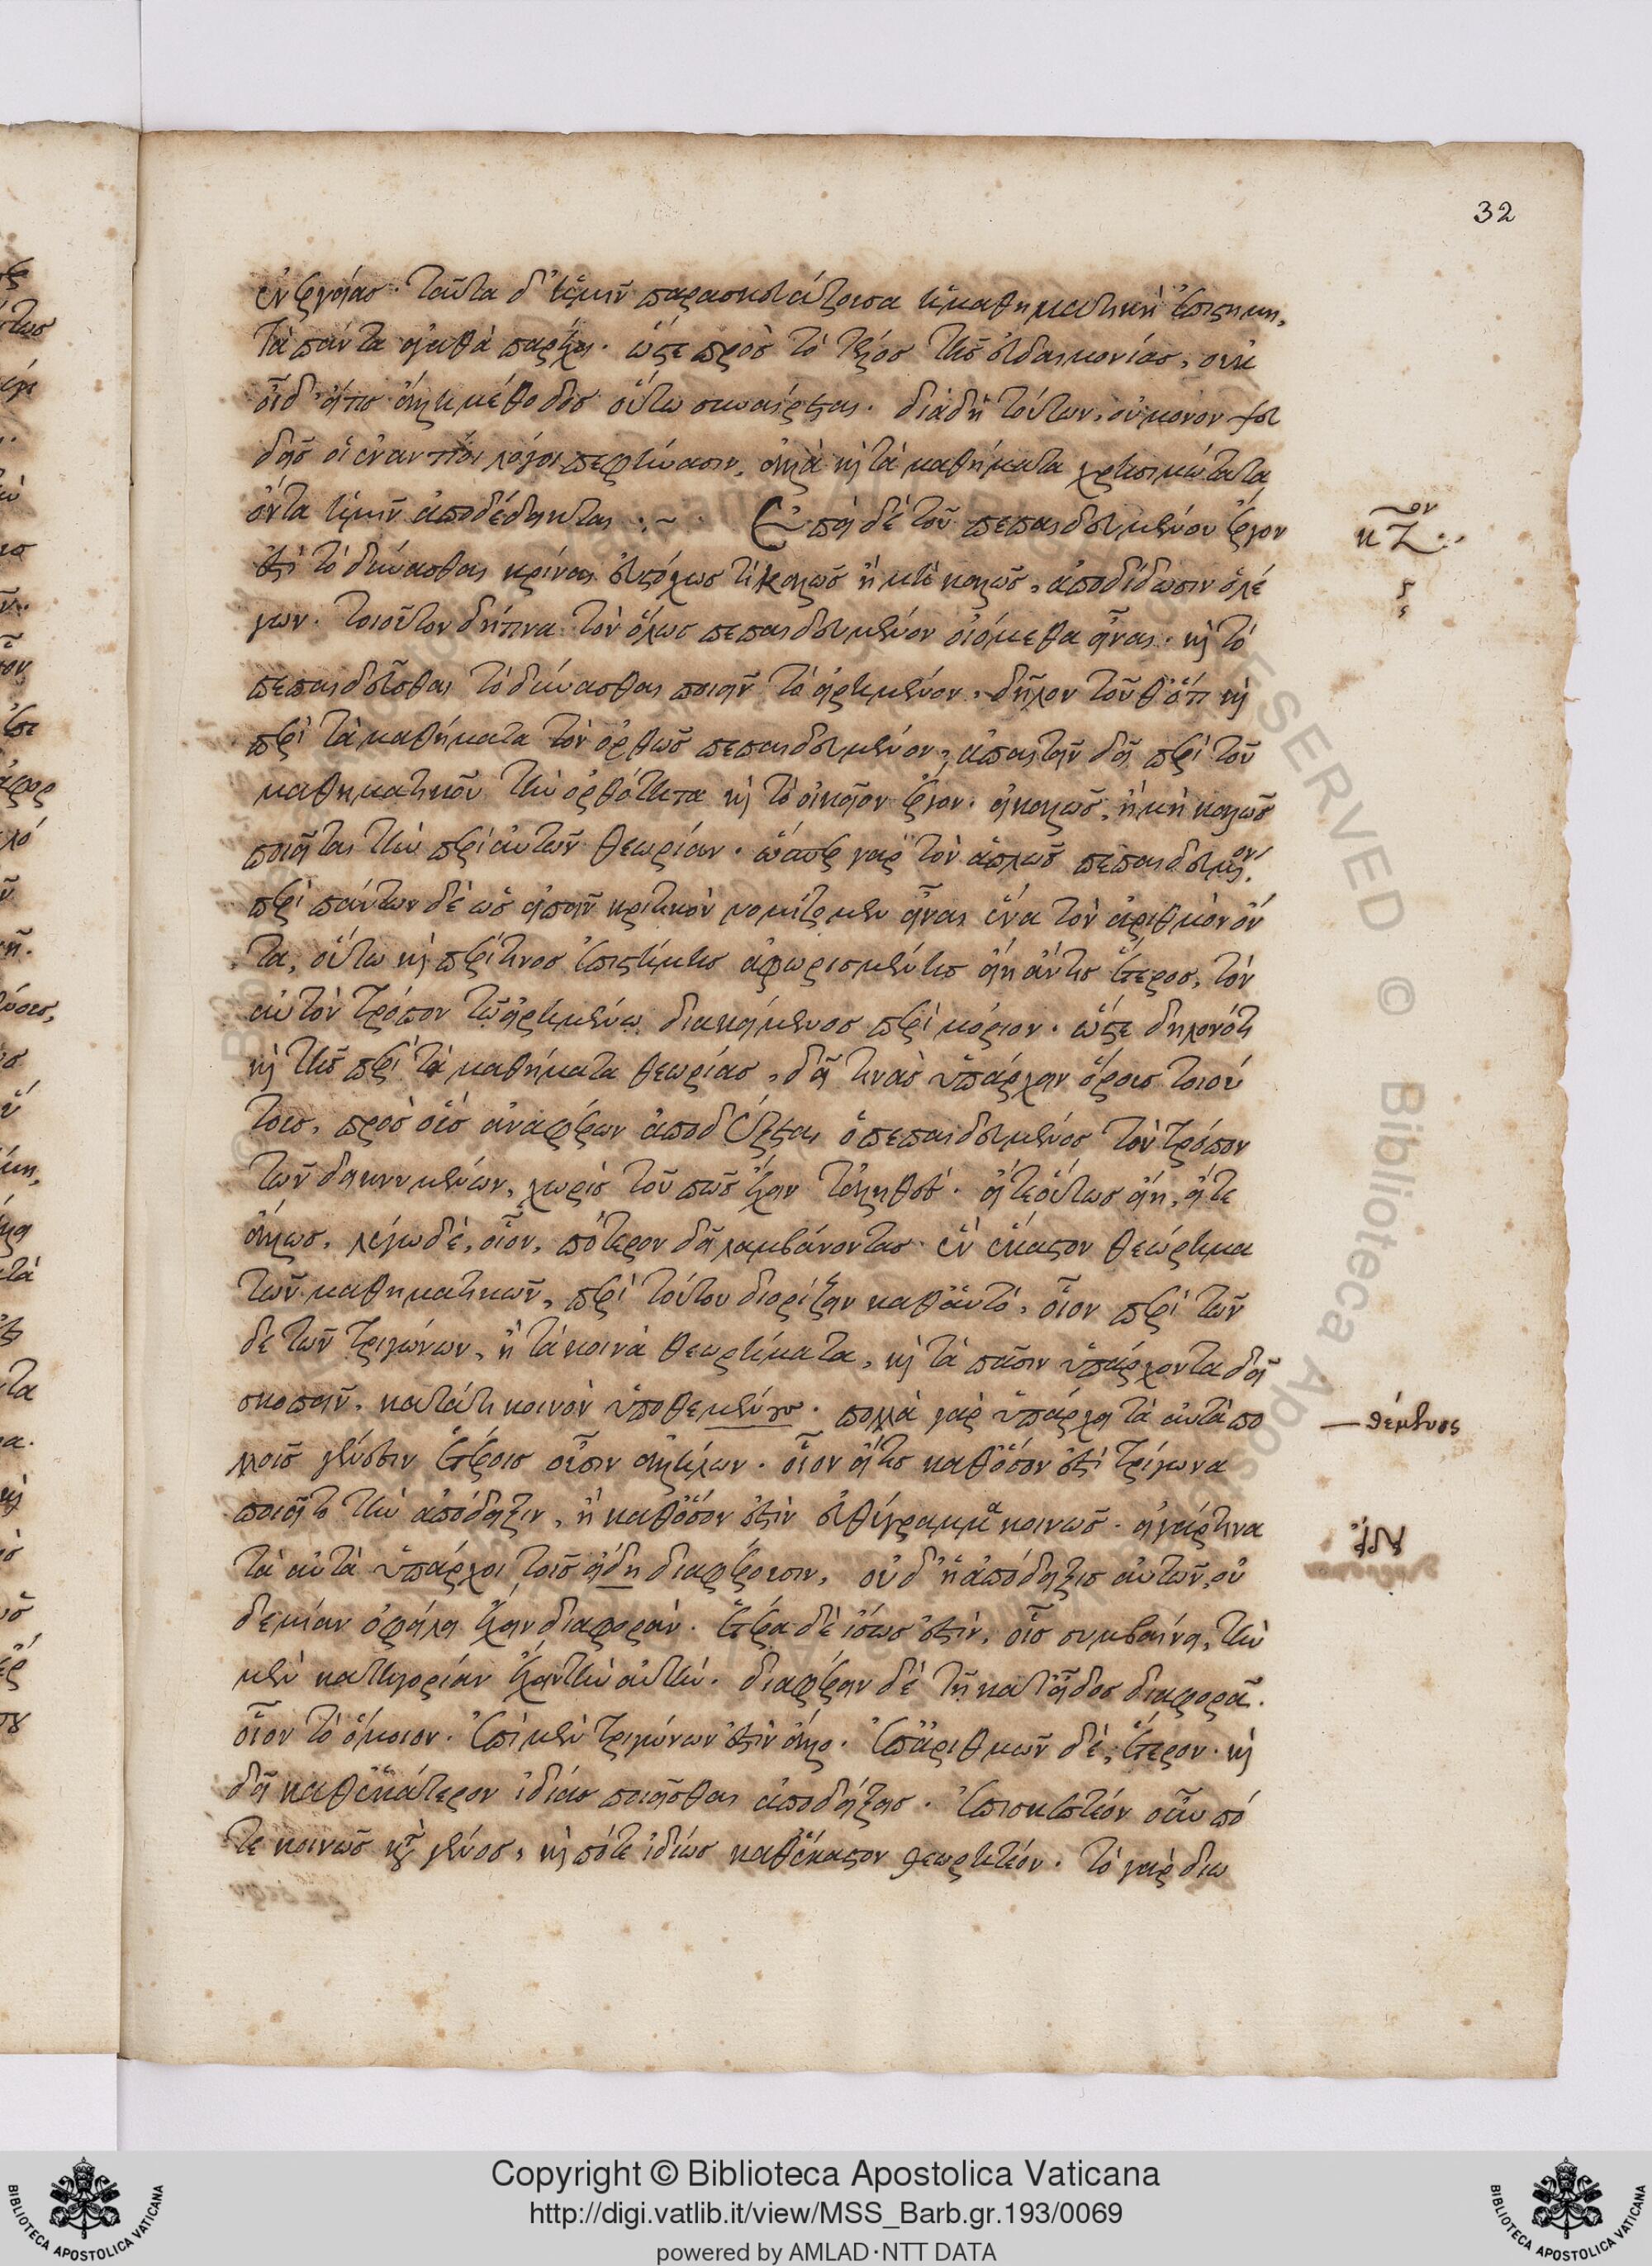 32
ἐνεργείας. ταῦτα δ' ἡμῖν παρασκευάζουσα ἡ μαθηματικὴ ἐπιστήμη,
τὰ πάντα ἀγαθὰ παρέχει. ὥστε πρὸς τὸ τέλος τῆς εὐδαιμονίας, οὐκ
οἶδ' εἴ τις ἄλλη μέθοδος οὕτω συναίρεται. διὰ δὴ τούτων, οὐ μόνον ψευ
δεῖς οἱ ἐναντίοι λόγοι πεφήνασιν, ἀλλὰ καὶ τὰ μαθήματα χρησιμώτατα
ὄντα ἡμῖν ἀποδέδεικται :~ Ἐπεὶ δὲ τοῦ πεπαιδευμένου ἔργον
ἐστὶ τὸ δύνασθαι κρῖναι εὐστόχως τί καλῶς ἢ μὴ καλῶς, ἀποδίδωσιν ὁ λέ
γων. τοιοῦτον δή τινα τὸν ὅλως πεπαιδευμένον οἰόμεθα εἶναι. καὶ τὸ
πεπαιδεῦσθαι τὸ δύνασθαι ποιεῖν τὸ εἰρημένον, δῆλον τοῦθ' ὅτι καὶ
περὶ τὰ μαθήματα τὸν ὀρθῶς πεπαιδευμένον, ἀπαιτεῖν δεῖ περὶ τοῦ
μαθηματικοῦ τὴν ὀρθότητα καὶ τὸ οἰκεῖον ἔργον. εἰ καλῶς, ἢ μὴ καλῶς
ποιεῖται τὴν περὶ αὐτῶν θεωρίαν. ὥσπερ γὰρ τὸν ἁπλῶς πεπαιδευμένον
περὶ πάντων δὲ ὡς εἰπεῖν κριτικὸν νομίζομεν εἶναι ἕνα τὸν ἀριθμὸν ὄν
τα, οὕτω καὶ περί τινος ἐπιστήμης ἀφωρισμένης εἴη ἄν τις ἕτερος, τὸν
αὐτὸν τρόπον τῷ εἰρημένῳ διακείμενος περὶ μόριον. ὥστε δηλονότι
καὶ τῆς περὶ τὰ μαθήματα θεωρίας, δεῖ τινὰς ὑπάρχειν ὅρους τοιού
τους, πρὸς οἷς ἀναφέρων ἀποδέξεται ὁ πεπαιδευμένος τὸν τρόπον
τῶν δεικνυμένων, χωρὶς τοῦ πῶς ἔχειν τἀληθές. εἴτε οὕτως εἴη, εἴτε
ἄλλως. λέγω δὲ, οἷον, πότερον δεῖ λαμβάνοντας ἓν ἕκαστον θεώρημα
τῶν μαθηματικῶν, περὶ τούτου διορίζειν καθ' αὑτό, οἷον περὶ τῶν
δε τῶν τριγώνων, ἢ τὰ κοινὰ θεωρήματα, καὶ τὰ πᾶσιν ὑπάρχοντα δεῖ
σκοπεῖν, κατά τι κοινὸν ὑποθεμένου. πολλὰ γὰρ ὑπάρχει τὰ αὐτὰ πο
λλοῖς γένεσιν ἑτέροις οὖσιν ἀλλήλων. οἷον εἴ τις καθ' ὅσον ἐστὶ τρίγωνα
ποιεῖτο τὴν ἀπόδειξιν, ἢ καθ' ὅσον ἐστὶν εὐθύγραμμα κοινῶς. εἰ γάρ τινα
τὰ αὐτὰ ὑπάρχοι τοῖς εἴδη διαφέρουσιν, οὐδ' ἡ ἀπόδειξις αὐτῶν, οὐ
δεμίαν ὀφείλει ἔχειν διαφοράν. ἕτερα δὲ ἴσως ἐστὶν, οἷς συμβαίνει, τὴν
μὲν κατηγορίαν ἔχειν τὴν αὐτήν. διαφέρειν δὲ τῇ κατ' εἶδος διαφορᾷ.
οἷον τὸ ὅμοιον. ἐπὶ μὲν τριγώνων ἐστὶν ἄλλο. ἐπ' ἀριθμῶν δὲ, ἕτερον. καὶ
δεῖ καθ' ἑκάτερον ἰδίας ποιεῖσθαι ἀποδείξεις. ἐπισκεπτέον οὖν πό
τε κοινῶς κατὰ γένος, καὶ πότε ἰδίως καθ' ἕκαστον θεωρητέον. τὸ γὰρ διω
κζ ον
— θέμενος
Copyright © Biblioteca Apostolica Vaticana
http://digi.vatlib.it/view/MSS_Barb.gr.193/0069
powered by AMLAD·NTT DATA
BIBLIOTECA APOSTOLICA VATICANA
BIBLIOTECA APOSTOLICA VATICANA